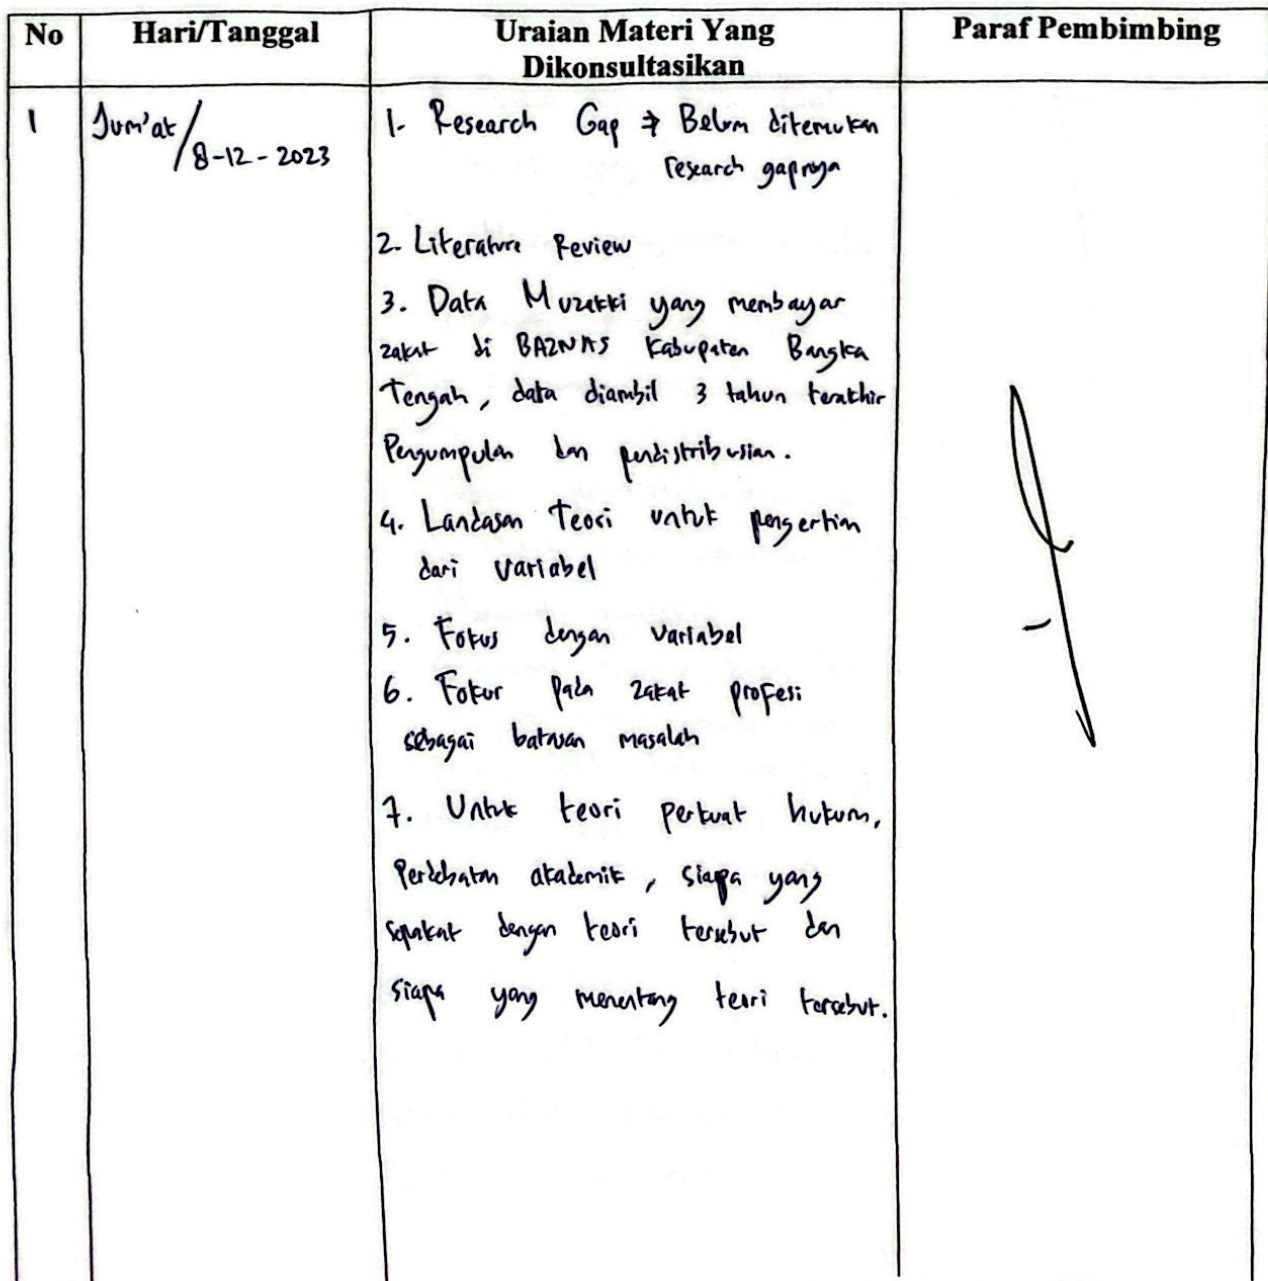 No
Hari/Tanggal
Uraian Materi Yang
Dikonsultasikan
Paraf Pembimbing
1
Jum'at/
8-12-2023
1. Research Gap ⇒ Belum ditemukan
research gapnya
2. Literature Review
3. Data Muzakki yang membayar
zakat di BAZNAS Kabupaten Bangka
Tengah, data diambil 3 tahun terakhir
Pengumpulan dan pendistribusian.
4. Landasan Teori untuk pengertian
dari variabel
5. Fokus dengan variabel
6. Fokus pada zakat profesi
sebagai batasan masalah
7. Untuk teori perkuat hukum,
Perdebatan akademik, siapa yang
sepakat dengan teori tersebut dan
siapa yang menentang teori tersebut.